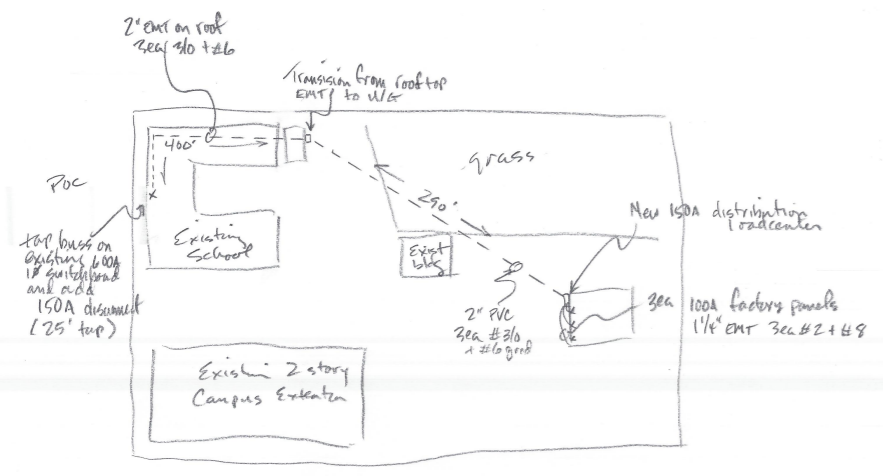 2" EMT on roof
3ea 3/0 + #6
Transision from rooftop
EMT to U/G
400'
grass
290'
POC
tap buss on
existing 600A
1Ø switchboard
and add
150A disconnect
(25' tap)
Existing
School
Exist
bldg
New 150A distribution
loadcenter
2" PVC
3ea #3/0
+ #6 grnd
3ea 100A factory panels
1 1/4" EMT 3ea #2 + #8
Existin 2 story
Campus Extention